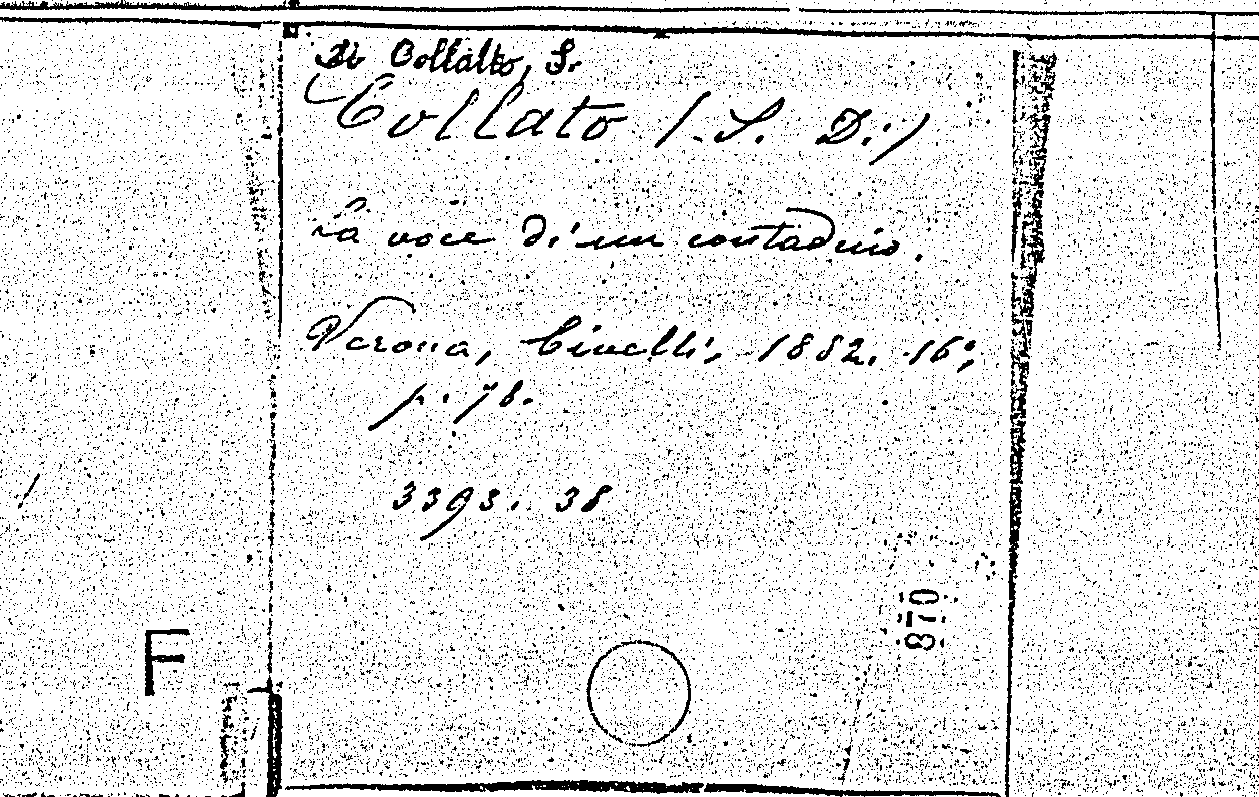 Di Collalto, S.
Collato (S. Di)
La voce di un contadino.
Verona, Civelli, 1882. 16°,
p. 78.
3393. 38
870
F